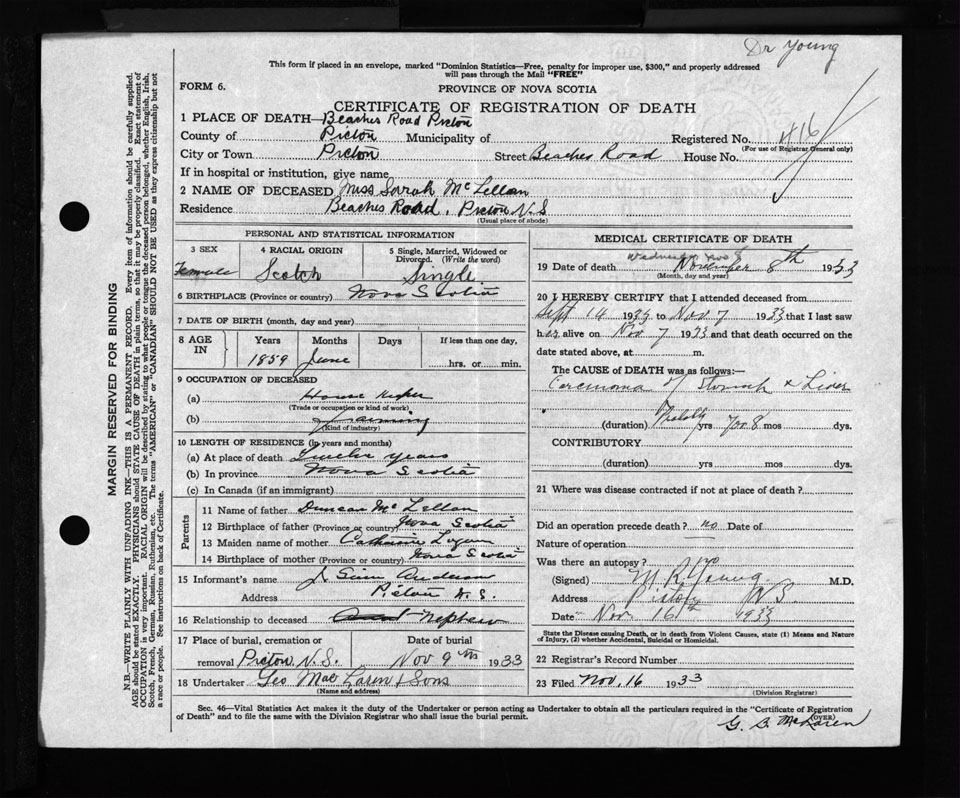 Dr Young
This form if placed in an envelope, marked "Dominion Statistics—Free, penalty for improper use, $300," and properly addressed
will pass through the Mail "FREE"
FORM 6.
PROVINCE OF NOVA SCOTIA
CERTIFICATE OF REGISTRATION OF DEATH
1 PLACE OF DEATH—Beaches Road Pictou
County of Pictou Municipality of Registered No. 416
(For use of Registrar General only)
City or Town Pictou Street Beaches Road House No.
If in hospital or institution, give name
2 NAME OF DECEASED Miss Sarah McLellan
Residence Beaches Road, Pictou N.S
(Usual place of abode)
PERSONAL AND STATISTICAL INFORMATION
3 SEX 4 RACIAL ORIGIN 5 Single, Married, Widowed or
Divorced. (Write the word)
Female Scotch Single
6 BIRTHPLACE (Province or country) Nova Scotia
7 DATE OF BIRTH (month, day and year)
8 AGE IN Years Months Days If less than one day,
1859 June hrs. or min.
9 OCCUPATION OF DECEASED
(a) House Keeper
(Trade or occupation or kind of work)
(b) Farming
(Kind of industry)
10 LENGTH OF RESIDENCE (in years and months)
(a) At place of death Twelve years
(b) In province Nova Scotia
(c) In Canada (if an immigrant)
Parents
11 Name of father Duncan McLellan
12 Birthplace of father (Province or country) Nova Scotia
13 Maiden name of mother Catherine
14 Birthplace of mother (Province or country) Nova Scotia
15 Informant's name J Anderson
Address Pictou N.S.
16 Relationship to deceased Nephew
17 Place of burial, cremation or Date of burial
removal Pictou N.S. Nov 9th 1933
18 Undertaker Geo MacLaren & Sons
(Name and address)
MEDICAL CERTIFICATE OF DEATH
Wednesday Nov 8
19 Date of death November 8th 1933
(Month, day and year)
20 I HEREBY CERTIFY that I attended deceased from
Sept 14 1933 to Nov 7 1933 that I last saw
her alive on Nov 7 1933 and that death occurred on the
date stated above, at m.
The CAUSE of DEATH was as follows:—
Carcinoma of Stomach & Liver
(duration) Probably yrs 7 or 8 mos dys.
CONTRIBUTORY
(duration) yrs mos dys.
21 Where was disease contracted if not at place of death?
Did an operation precede death? no Date of
Nature of operation
Was there an autopsy?
(Signed) M R Young M.D.
Address Pictou NS.
Date Nov 16th 1933
State the Disease causing Death, or in death from Violent Causes, state (1) Means and Nature
of Injury, (2) whether Accidental, Suicidal or Homicidal.
22 Registrar's Record Number
23 Filed Nov. 16 1933
(Division Registrar)
Sec. 46—Vital Statistics Act makes it the duty of the Undertaker or person acting as Undertaker to obtain all the particulars required in the "Certificate of Registration
of Death" and to file the same with the Division Registrar who shall issue the burial permit.
(OVER)
G. B. McLaren
MARGIN RESERVED FOR BINDING
N.B.—WRITE PLAINLY WITH UNFADING INK—THIS IS A PERMANENT RECORD. Every item of information should be carefully supplied.
AGE should be stated EXACTLY. PHYSICIANS should STATE CAUSE OF DEATH in plain terms, so that it may be properly classified. Exact statement of
OCCUPATION is very important. RACIAL ORIGIN will be described by stating to what people or tongue the deceased person belonged, whether English, Irish,
Scotch, French, German, Russian, Ruthenian, etc. The terms "AMERICAN" or "CANADIAN" SHOULD NOT BE USED as they express citizenship but not
a race or people. See instructions on back of Certificate.